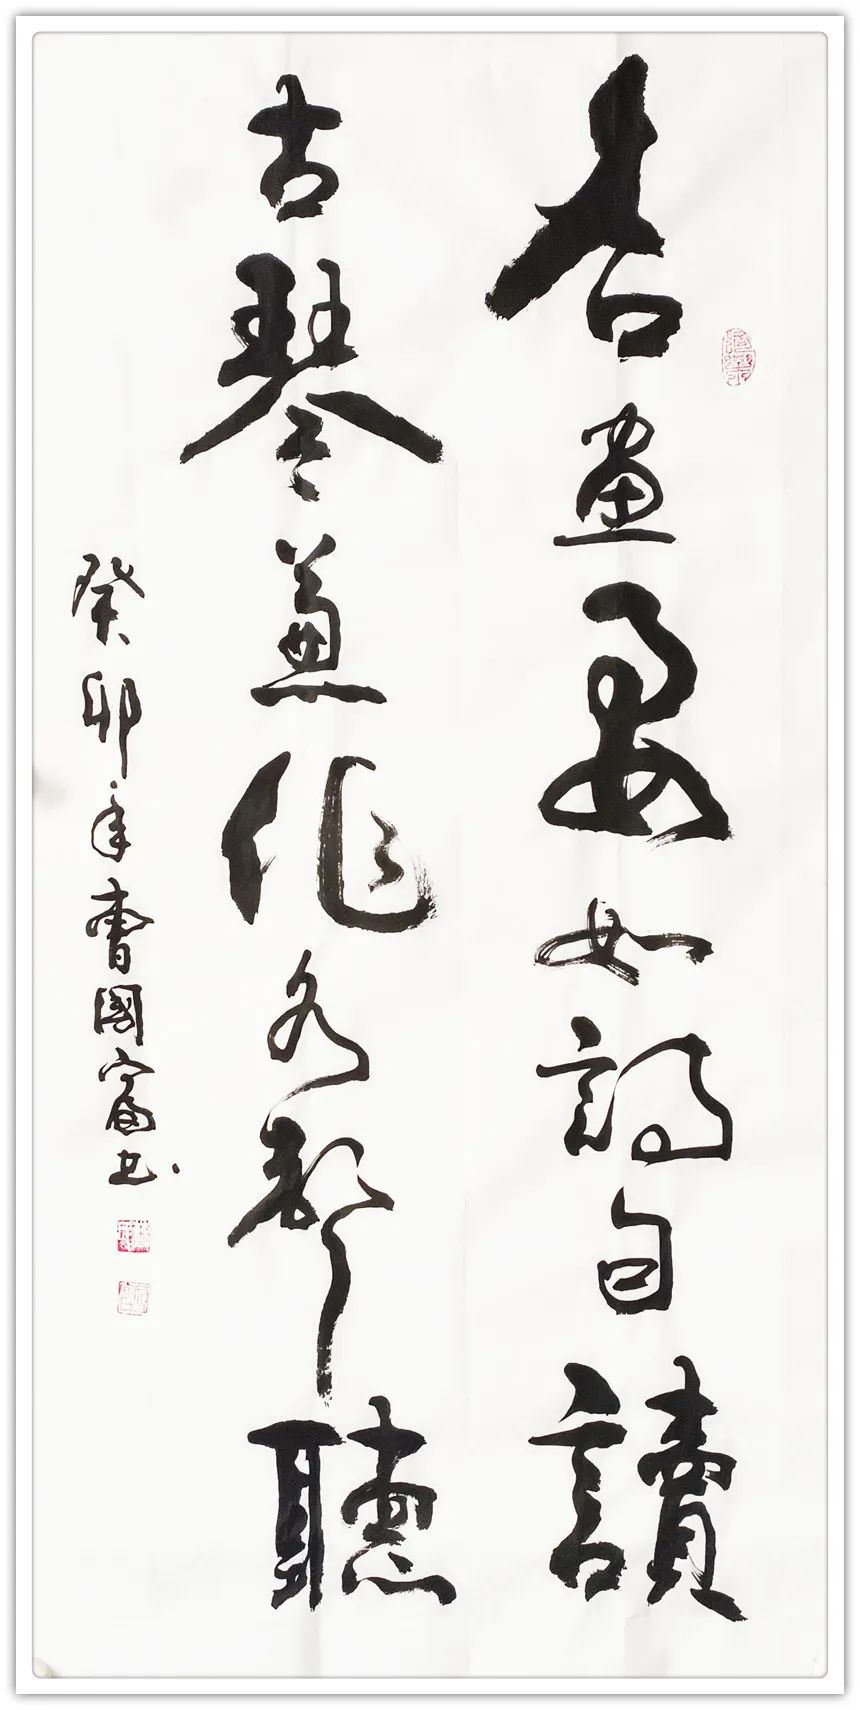 名畫要如詩句讀
古琴兼作水聲聽
癸卯年曹國富书